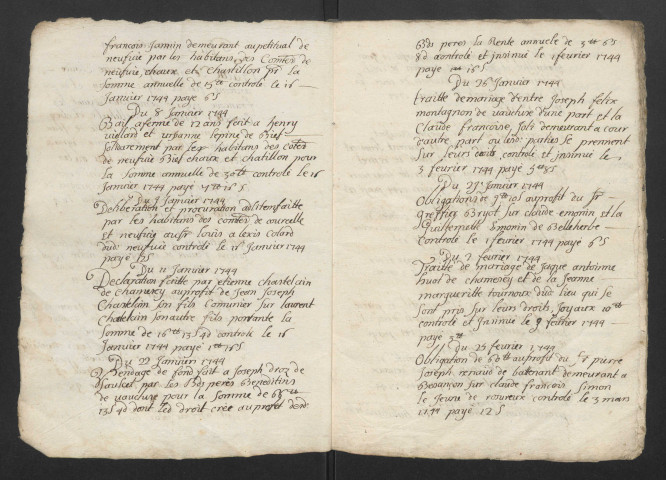 francois Jamin demeurant au petitual de
neufuie par les habitans des Comtés de
neufuie, chaux et chastillon pr la
Somme annuelle de 15tt controlé le 16
Janvier 1744 payé 6s
Du 8 Janvier 1744
Bail a ferme de 12 ans fait a henry
vuillard et urbanne lepine de Bief
Solidairement par les habitans des cotes
de neufuie Bief chaux et chatillon pour
la Somme annuelle de 30tt controlé le 16
Janvier 1744 payé
Du 9 Janvier 1744
Deliberation et procuration ad litem faitte
par les habitans des comtés de courcelle
et neufuie au sr Louis alexis Colard
dud neufuie controlé le Janvier 1744
payé 12s
Du 11 Janvier 1744
Declaration faitte par etienne chastelain
de Chamesey au profit de Jean Joseph
Chastelain son fils Comunier sur laurent
chatelain son autre fils portante la
Somme de 16tt 13s 4d controlé le 16
Janvier 1744 payé 1tt 16s
Du 22 Janvier 1744
Vendage de fond fait a Joseph droz de
Saulces par les Rds peres Benedictins
de vaucluse pour la Somme de
13s 4d dont led droit cree au profit desd
Rds peres la Rente annuele de 3tt 6s
8d controlé et jnsinué le 1 fevrier 1744
payé 1tt 16s
Du 26 Janvier 1744
traitte de mariage d'entre Joseph felix
montagnon de vaucluse d'une part et la
Claude francoise Joly demeurant a cour
d'autre part ou lesd parties se prennent
sur leurs droits, controlé et jnsinué le
3 fevrier 1744 payé 5tt 8s
Du 27 Janvier 1744
Obligations de 9tt 10s au profit du sr
greffier Bryot, sur claude emonin et la
Guillemette Emonin de Belleherbe
Controlé le 1 fevrier 1744 payé 6s
Du 2 fevrier 1744
Traitté de mariage de Jaque antoinne
huot de chamesey et de Jeanne
margueritte tournoux dud lieu qui se
sont pris sur leurs droits, Joyaux 10tt
controlé et jnsinué le 9 fevrier 1744
payé 3tt
Du 25 fevrier 1744
Obligation de 60tt au profit du Sr pierre
Joseph renaud de batenant demeurant a
Besançon sur claude francois Simon
le Jeune de rosureux controlé le 3 mars
1744 payé 12s